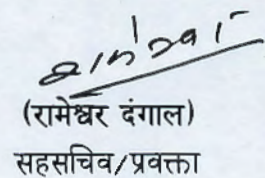 (रामेश्वर दंगाल)
सहसचिव/प्रवक्ता